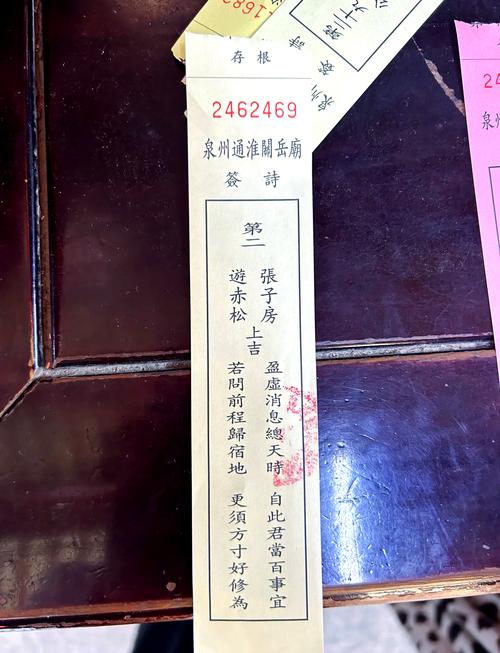 存根
2462469
泉州通淮關岳廟
簽詩
第二
張子房
遊赤松
上吉
盈虛消息總天時 自此君當百事宜
若問前程歸宿地 更須方寸好修為
第二十九
簽詩
24
泉州